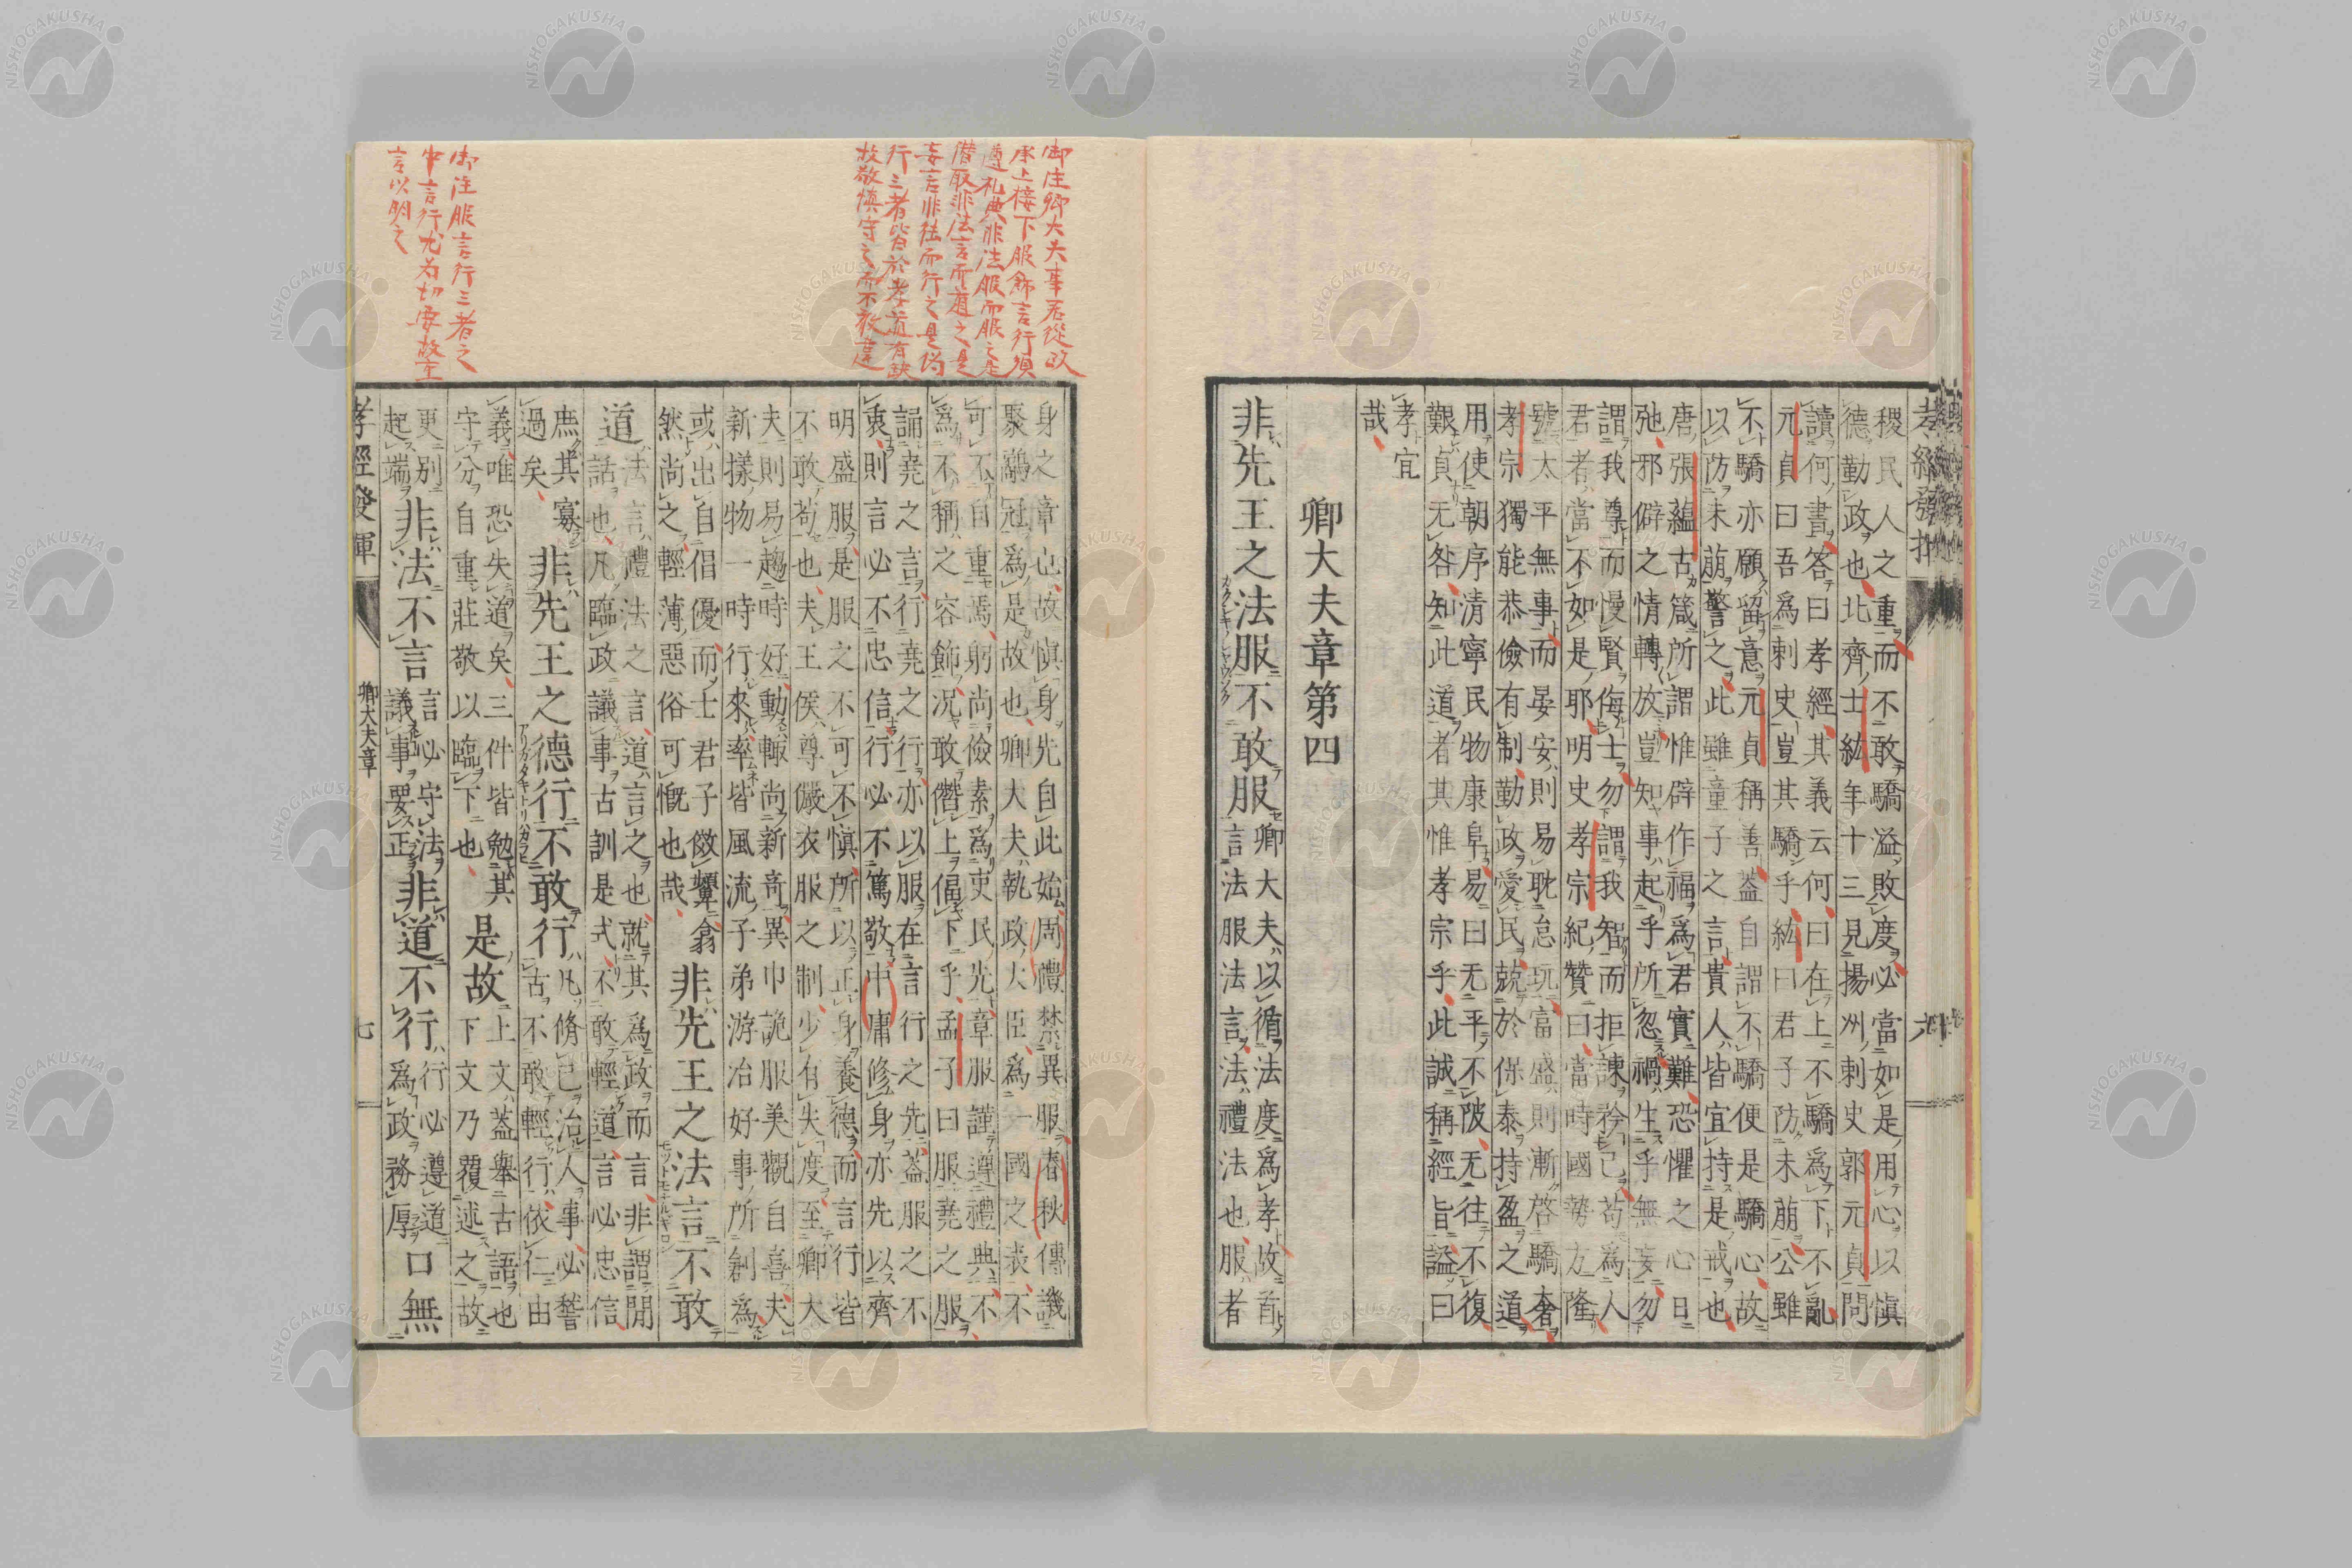 孝經發揮
六
稷民人之重而不敢驕溢敗度必當如是用心以慎
德勤政也北齊士紘年十三見揚州刺史郭元貞問
讀何書答曰孝經其義云何曰在上不驕爲下不亂
元貞曰吾爲刺史豈其驕乎紘曰君子防未萠公雖
不驕亦願留意元貞稱善葢自謂不驕便是驕心故
以防未萠警之此雖童子之言貴人皆宜持是戒也
唐張蘊古箴所謂惟辟作福爲君實難恐懼之心日
弛邪僻之情轉放豈知事起乎所忽禍生乎無妄勿
謂我尊而慢賢侮士勿謂我智而拒諫矜己苟爲人
君者當不如是耶明史孝宗紀贊曰當時國勢方隆
號太平無事而晏安則易耽怠玩富盛則漸啓驕奢
孝宗獨能恭儉有制勤政愛民兢於保泰持盈之道
用使朝序清寧民物康阜易曰无平不陂无往不復
艱貞无咎知此道者其惟孝宗乎此誠稱經旨謚曰
孝宜
哉
卿大夫章第四
非先王之法服不敢服
卿大夫以循法度爲孝故首
言法服法言法禮法也服者
御注卿大夫事君從政
承上接下服飾言行須
遵礼典非法服而服之是
僭服非法言而道之是
妄言非法而行之是僞
行三者皆於孝道有缺
故敬慎守之而不敢違
身之章也故慎身先自此始周禮禁異服春秋傳譏
聚鷸冠爲是故也卿大夫執政大臣爲一國之表不
可不自重焉躬尚儉素爲吏民先章服謹遵禮典不
爲不稱之容飾況敢僭上偪下乎孟子曰服堯之服
誦堯之言行堯之行亦以服在言行之先葢服之不
衷則言必不忠信行必不篤敬中庸修身亦先以齊
明盛服是服之不可不慎所以正身養德而言行皆
不敢苟也夫王侯尊儼衣服之制少有失度至卿大
夫則易趨時好動輙尚新竒異巾詭服美觀自喜夫
新樣物一時行來率皆風流子弟游冶好事所創爲
或出自倡優而士君子傚顰翕
然尚之輕薄惡俗可慨也哉
非先王之法言不敢
道
法言禮法之言道言之也就其爲政而言非謂閒
話也凡臨政議事古訓是式不敢輕道言必忠信
庶其寡
過矣
非先王之德行不敢行
凡脩己治人事必誓
古不敢輕行依仁由
義唯恐失道矣三件皆勉其
守分自重莊敬以臨下也
是故
上文葢舉古語也
下文乃覆述之故
御注服言行三者之
中言行尤爲切要故主
言以明之
更別
起端
非法不言
言必守法
議事要正
非道不行
行必遵道
爲政務厚
口無
孝經發揮
卿大夫章
七